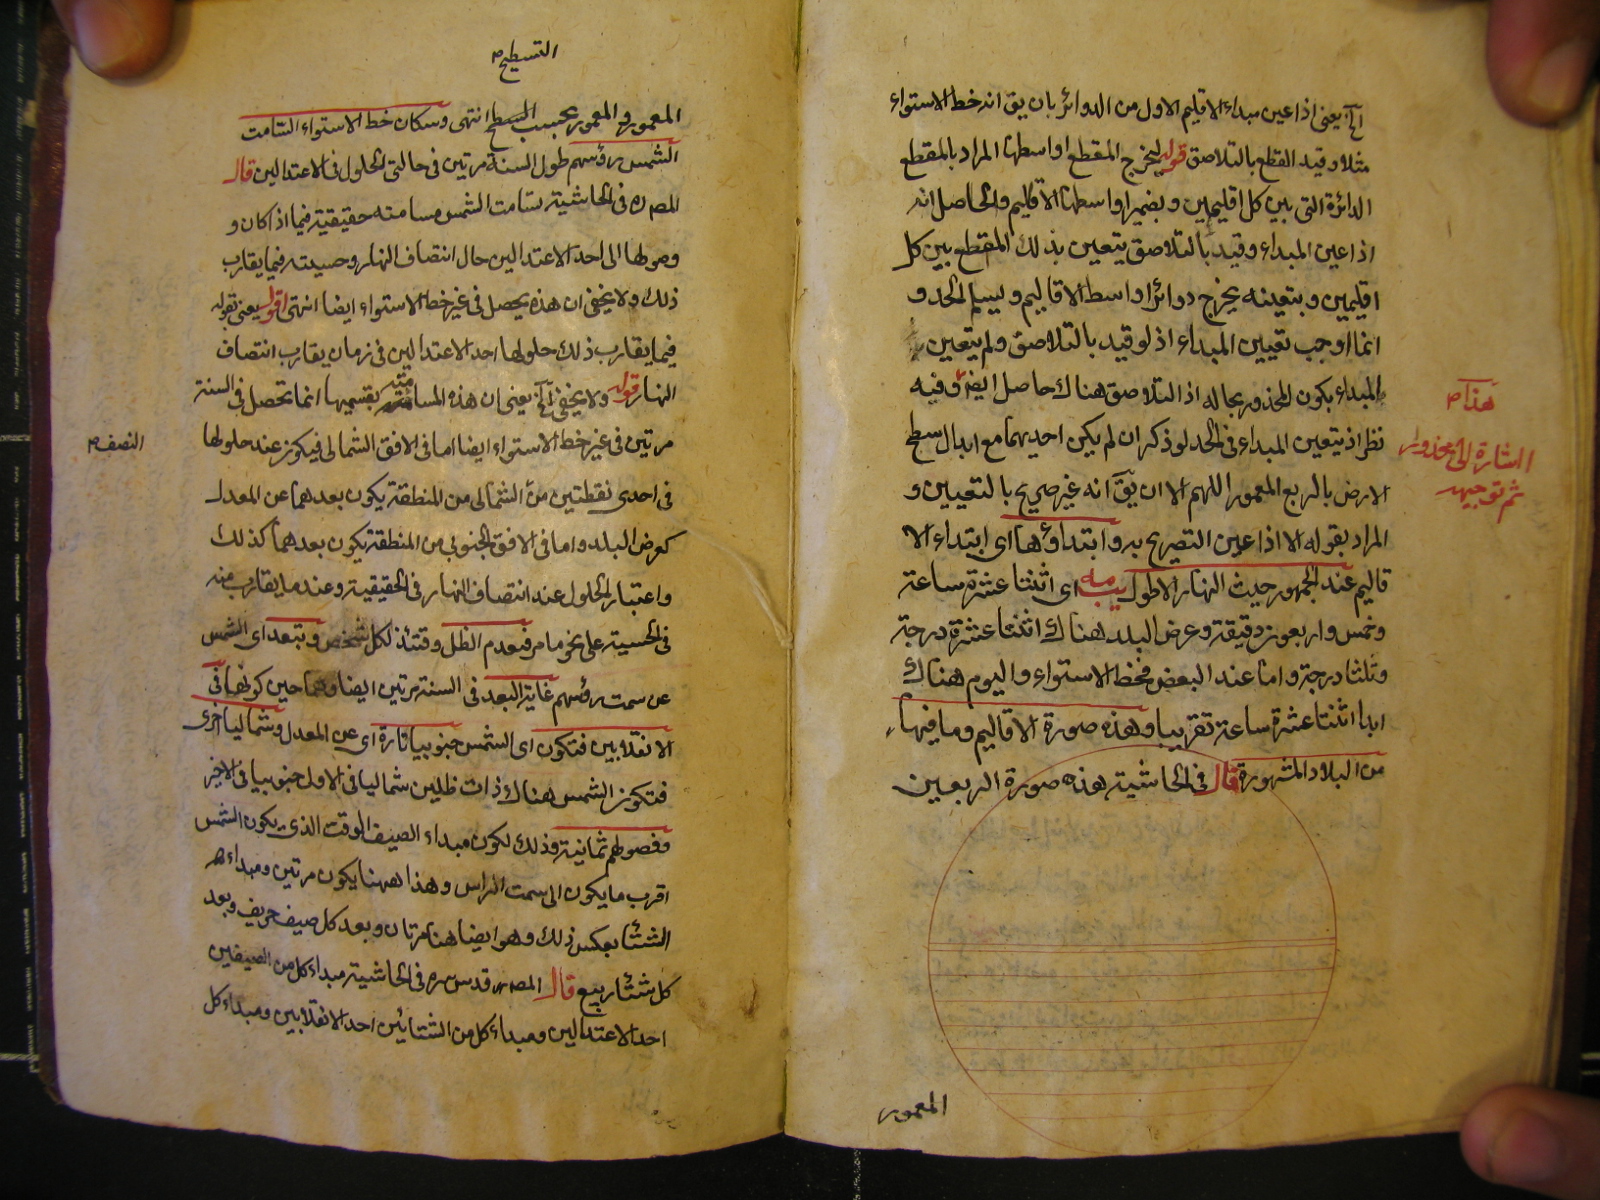 الخ يعنى اذا عين مبداء الاقليم الاول من الدوائر بان يق انه خط الاستواء
مثلا وقيد القطع بالتلاصق قوله ليخرج المقطع اواسطها المراد بالمقطع
الدائرة التى بين كل اقليمين وبضمير اواسطها الاقاليم والحاصل انه
اذا عين المبداء وقيد بالتلاصق يتعين بذلك المقطع بين كل
اقليمين وبتعينه يخرج دوائر اواسط الاقاليم ويسلم الحد و
انما اوجب تعيين المبداء اذ لو قيد بالتلاصق ولم يتعين
المبداء يكون المحذور بحاله اذ التلاصق هناك حاصل ايضا وفيه
نظر اذ يتعين المبداء فى الحد لو ذكر ان لم يكن احديهما مع ابدال سطح
الارض بالربع المعمور اللهم الا ان يق انه غير صريح بالتعيين و
المراد بقوله الا اذا عين التصريح به وابتداؤها اى ابتداء الا
قاليم عند الجمهور حيث النهار الاطول يب مه اى اثنتا عشرة ساعة
وخمس واربعون دقيقة وعرض البلد هناك اثنتا عشرة درجة
وثلثا درجة واما عند البعض فخط الاستواء واليوم هناك
ابدا اثنتا عشرة ساعة تقريبا وهذه صورة الاقاليم وما فيها
من البلاد المشهورة قال فى الحاشية هذه صورة الربعين
هذا
اشارة الى محذور
ثم توجيهه
المعمور
التسطيح
المعمور والمعمور بحسب السطح انتهى وسكان خط الاستواء تسامت
الشمس رؤسهم طول السنة مرتين فى حالتى الحلول فى الاعتدالين قال
المص ره فى الحاشية تسامت الشمس مسامتة حقيقية فيما اذا كان و
وصولها الى احد الاعتدالين حال انتصاف النهار وحسية فيما يقارب
ذلك ولا يخفى ان هذه يحصل فى غير خط الاستواء ايضا انتهى اقول يعنى بقوله
فيما يقارب ذلك حلولها احد الاعتدالين فى زمان يقارب انتصاف
النهار قوله ولا يخفى الخ يعنى ان هذه المسامتة بقسميها انما تحصل فى السنة
مرتين فى غير خط الاستواء ايضا اما فى الافق الشمالى فيكون عند حلولها
النصف
فى احدى نقطتين من الشمالى من المنطقة يكون بعدهما عن المعدل
كعرض البلد واما فى الافق الجنوبى من المنطقة يكون بعدهما كذلك
واعتبار الحلول عند انتصاف النهار فى الحقيقية وعند ما يقارب منه
فى الحسية على نحو ما مر فيعدم الظل وقتئذ لكل شخص وتبعد اى الشمس
عن سمت رؤسهم غاية البعد فى السنة مرتين ايضا وهما حين كونها فى
الانقلابين فتكون اى الشمس جنوبيا تارة اى عن المعدل وشماليا اخرى
فتكون الشمس هناك ذات ظلين شماليا فى الاول جنوبيا فى الاخر
وفصولهم ثمانية وذلك لكون مبداء الصيف الوقت الذى يكون الشمس
اقرب ما يكون الى سمت الراس وهذا ههنا يكون مرتين ومبداء
الشتاء بعكس ذلك وهو ايضا هنا مرتان وبعد كل صيف خريف وبعد
كل شتاء ربيع قال المص قدس سره فى الحاشية مبداء كل من الصيفين
احد الاعتدالين ومبداء كل من الشتائين احد الانقلابين ومبداء كل